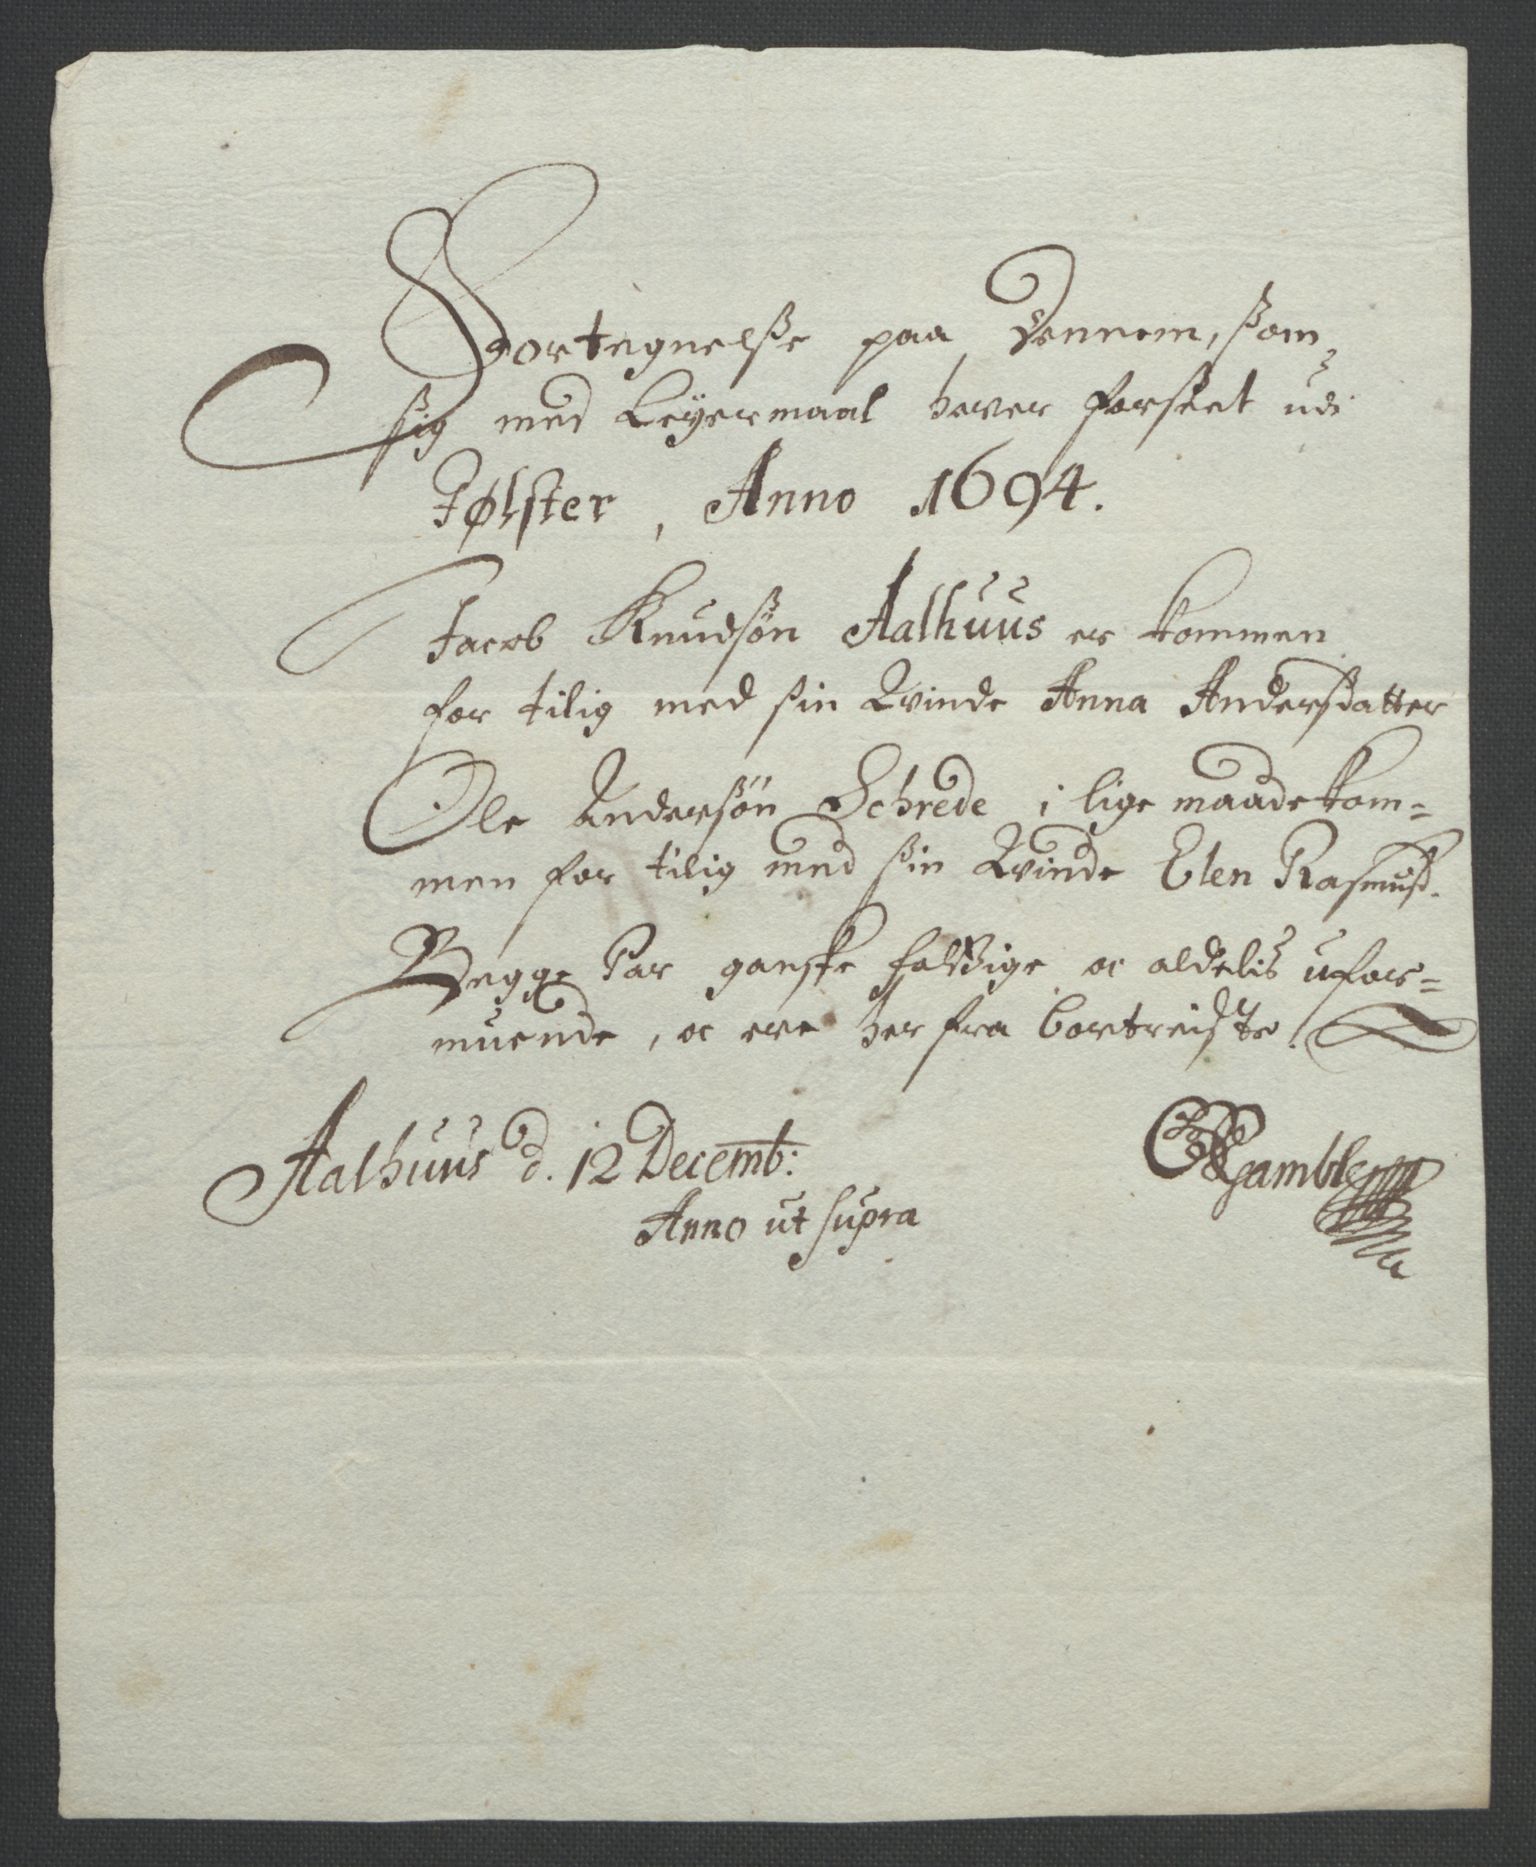 Fortegnelsse paa Dennem, ssom
sig med Leyermaal hawer forseet udi
Jølster, Anno 1694.
Jacob Knudsøn Aalhuus er kommen
for tilig med sin Qvinde Anna Andersdatter
Ole Andersøn Schrede i lige maade kom=
men for tilig med sin Qvinde Elen Rasmusd.
Begge Par ganske fattige oc aldelis ufor=
muende, oc ere her fra bortreiste.
Aalhuus d. 12 Decemb:
Gamble
Anno ut supra